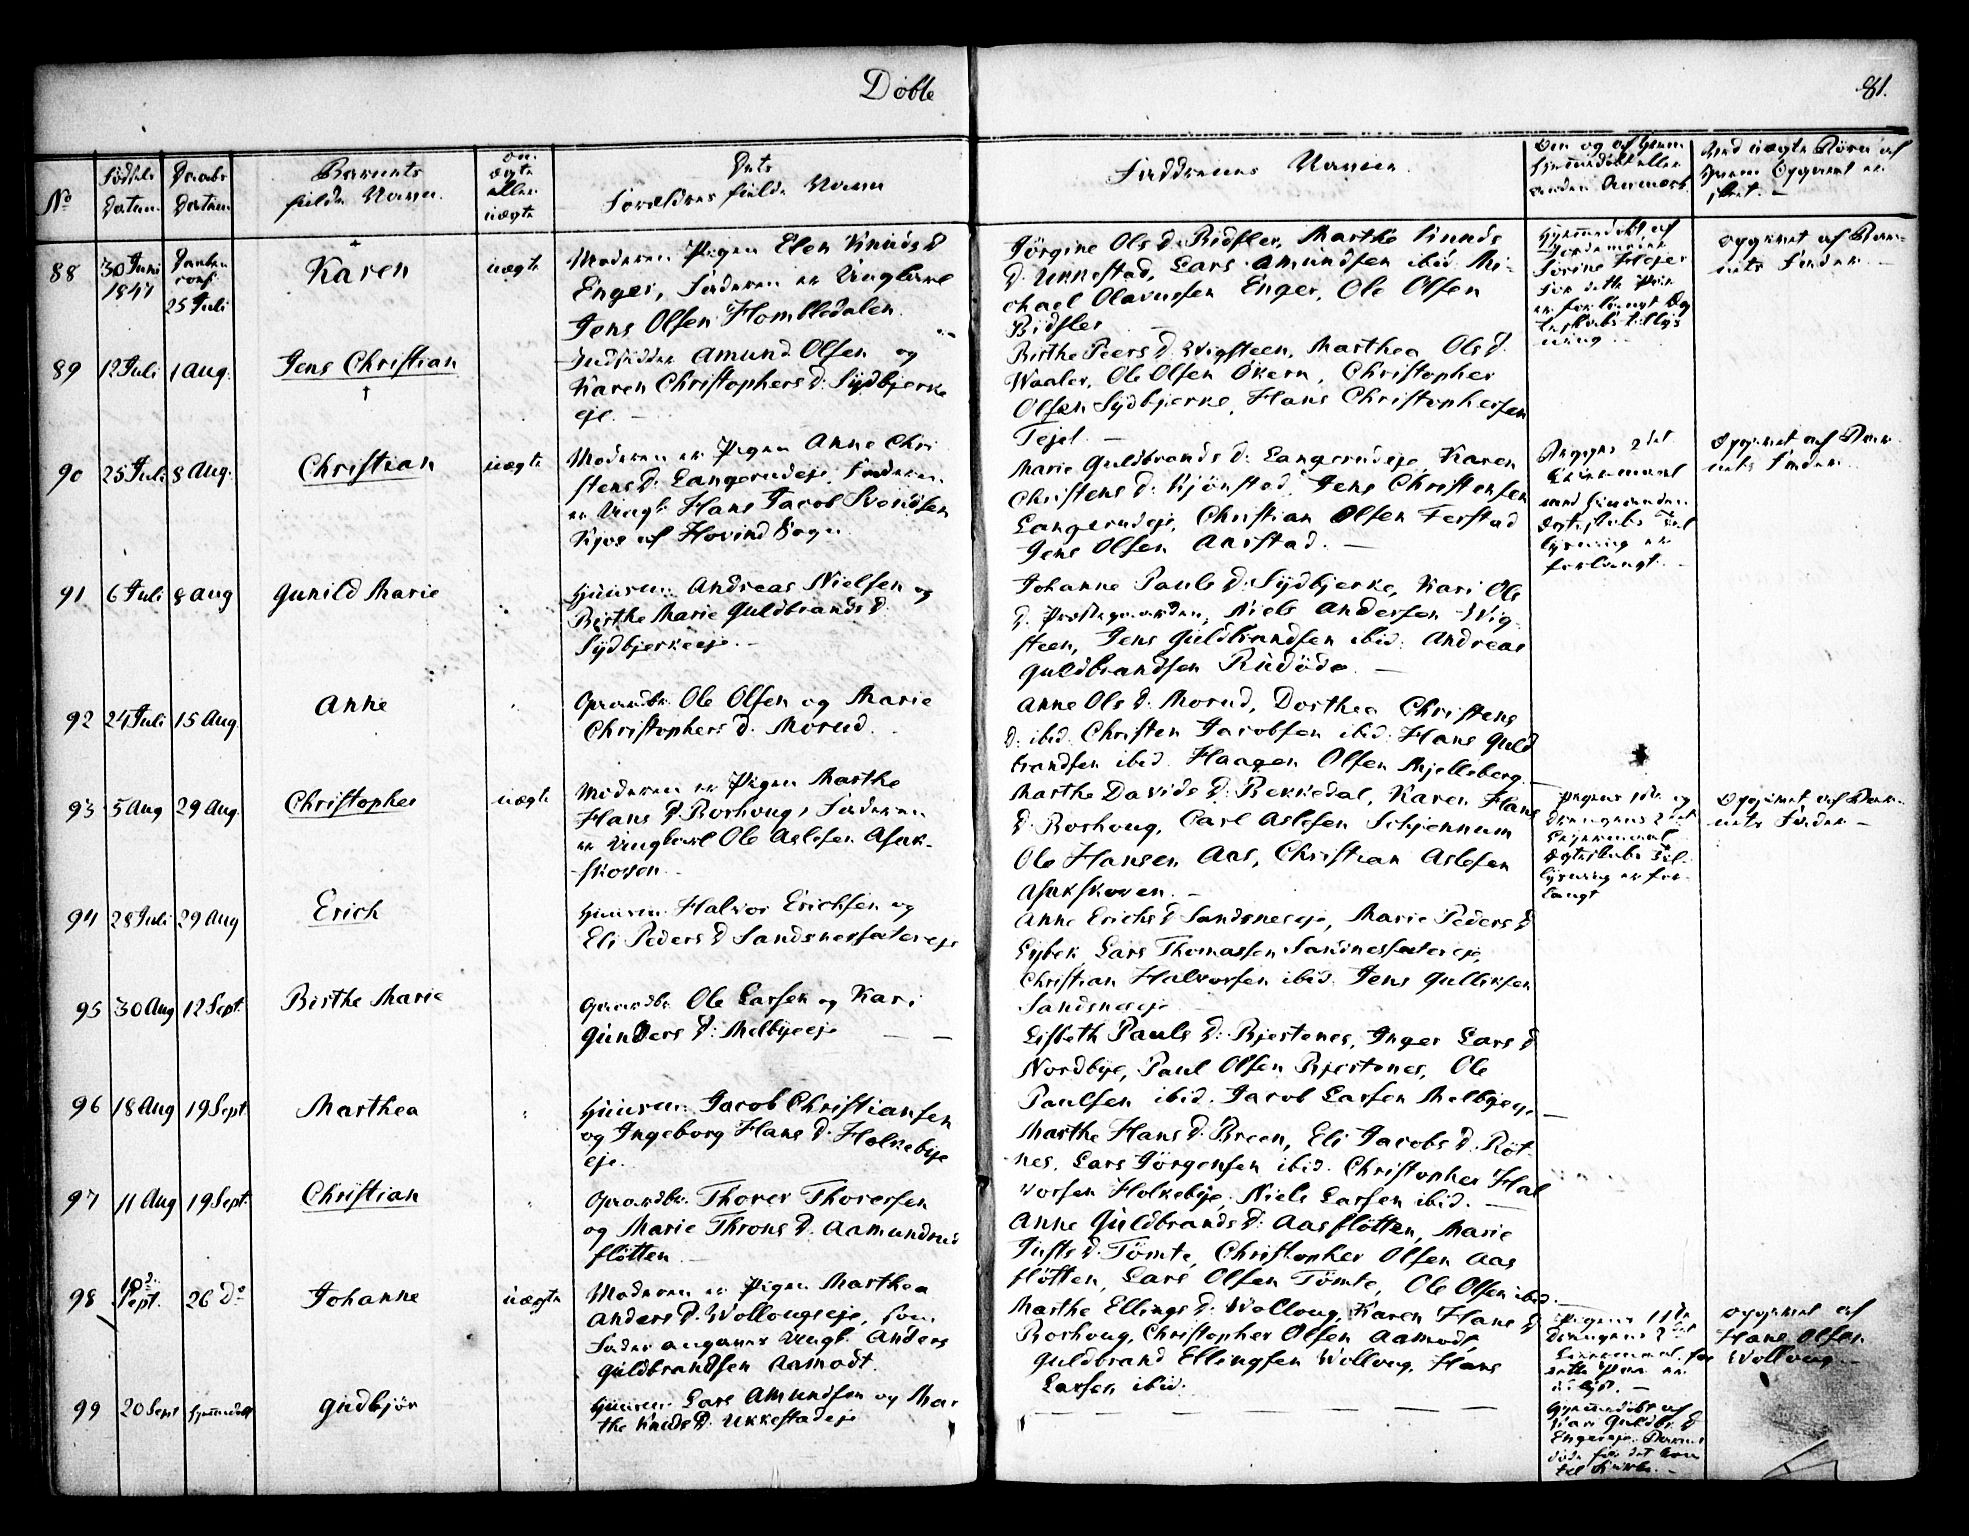 Døbte
81.
No
Fødsels
Datum.
Daabs
Datum.
Barnets
fulde Navn.
Om
ægte
eller
uægte
Dets
Forældres fulde Navn
Faddernes Navne.
Om og af hvem
hjemmedøbt eller
anden Anmærk.
Ved uægte Børn af
hvem Opgivet er
skeet. —
88
30 Juni
1847
Daaben
conf.
25 Juli
Karen
uægte
Moderen Pigen Elen Knuds D
Enger, Faderen er Ungkarl
Jens Olsen Hombledalen.
Jörgine Ols D: Bidsler, Marthe Knuds
D. Ukkestad, Lars Amundsen ibid. Mi-
chael Olavessen Enger, Ole Olsen
Bidsler
Hjemmedøbt af
Jordemoder
Sörine Hejer
For dette Par
er forlangt Æg
teskabs tillys
ning.
Opgivet af Bar-
nets Fader. —
89
12 Juli
1 Aug.
Jens Christian
†
Indsidder Amund Olsen og
Karen Christophers D: Sydbjerke
eje. —
Birthe Peers D. Wigsteen, Marthea Ols D.
Waaler, Ole Olsen Økern, Christopher
Olsen Sydbjerke, Hans Christophersen
Tejel. —
90
25 Juli
8 Aug.
Christian
uægte
Moderen er Pigen Anne Chri
stens D: Langerudeje, Faderen
er Ungk. Hans Jacob Svendsen
Kjos af Hovind Sogn
Marie Guldbrands D: Langerudeje, Karen
Christens D: Kjönstad, Jens Christensen
Langerudeje, Christian Olsen Ferstad
Jens Olsen Aarstad. —
Begges 2det
Leiermaal
med hinanden
Ægteskabs Til
lysning er
forlangt. —
Opgivet af Bar
nets Fader.
91
6 Juli
8 Aug
Gunild Marie
Huusm: Andreas Nielsen og
Birthe Marie Guldbrands D.
Sydbjerkeeje. —
Johanne Pauls D: Sydbjerke, Kari Ols
D. Prestegaarden, Niels Andersen Wig-
steen, Jens Guldbrandsen ibid. Andreas
Guldbrandsen Rudöde. —
92
24 Juli
15 Aug
Anne
Gaardbr. Ole Olsen og Marie
Christophers D. Morud.
Anne Ols D. Morud, Dorthea Christens
D. ibid. Christen Jacobsen ibid. Hans Guld
brandsen ibid. Haagen Olsen Mjelleberg. —
93
5 Aug
29 Aug
Christopher
uægte
Moderen er Pigen Marthe
Hans D. Borhoug, Faderen
er Ungkarl Ole Aslesen Asak-
skoven.
Marthe Davids D. Bekkedal, Karen Hans
D. Borhoug, Carl Aslesen Schjennum
Ole Hansen Aas, Christian Aslesen
Asakskoven. —
Pigens 1ste og
drengens 2det
Leiermaal
Ægteskabs Til-
lysning er for-
langt
Opgivet af Bar-
nets Fader —
94
28 Juli
29 Aug
Erich
Huusm. Halvor Erichsen og
Eli Peders D Sandsnessætereje
Anne Erichs D Sandsneseje, Marie Peders D
Lybek, Lars Thomassen Sandnessætereje,
Christian Halvorsen ibid. Jens Gulliksen
Sandsneseje
95
30 Aug
12 Sept.
Birthe Marie
Gaardbr. Ole Larsen og Kari
Gunders D: Melbyeeje — —
Lisbeth Pauls D: Bjertenes, Inger Lars D
Nordbye, Paul Olsen Bjertenes, Ole
Paulsen ibid. Jacob Larsen Melbyeeje —
96
18 Aug
19 Sept.
Marthea
Huusm. Jacob Christiansen
og Ingeborg Hans D. Holkebye
eje.
Marthe Hans D. Breen, Eli Jacobs D. Röt-
nes, Lars Jörgensen ibid. Christopher Hal
vorsen Holkebye, Niels Larsen ibid. —
97
11 Aug
19 Sept.
Christian
Gaardbr. Thorer Thorersen
og Marie Throns D. Aamundrud
fløtten —
Anne Guldbrands D: Aasfløtten, Marie
Justs D. Tömte, Christopher Olsen Aas
fløtten, Lars Olsen Tömte, Ole Olsen ibid. —
98
Sept.
26 Do
Johanne
uægte
Moderen er Pigen Marthea
Anders D. Wollougseje, som
Fader angives Ungk. Anders
Guldbrandsen Aamodt.
Marthe Ellings D: Wolloug, Karen Hans D
Borhoug, Christopher Olsen Aamodt,
Guldbrand Ellingsen Wolloug, Hans
Larsen ibid.
Pigens 1ste
Drengens 2det
Leiermaal, for
dette Par er
Opgivet af
Hans Olsen
Wolloug. —
99
20 Sept
hjemmedøbt
Gudbjör
Huusm. Lars Amundsen og Mar
the Knuds D. Ukkestadeje
— — — — — — —
Hjemmedøbt af
Kari Guldbr. D
Engereje. Barnet
døde før det kom
til Kirke. —